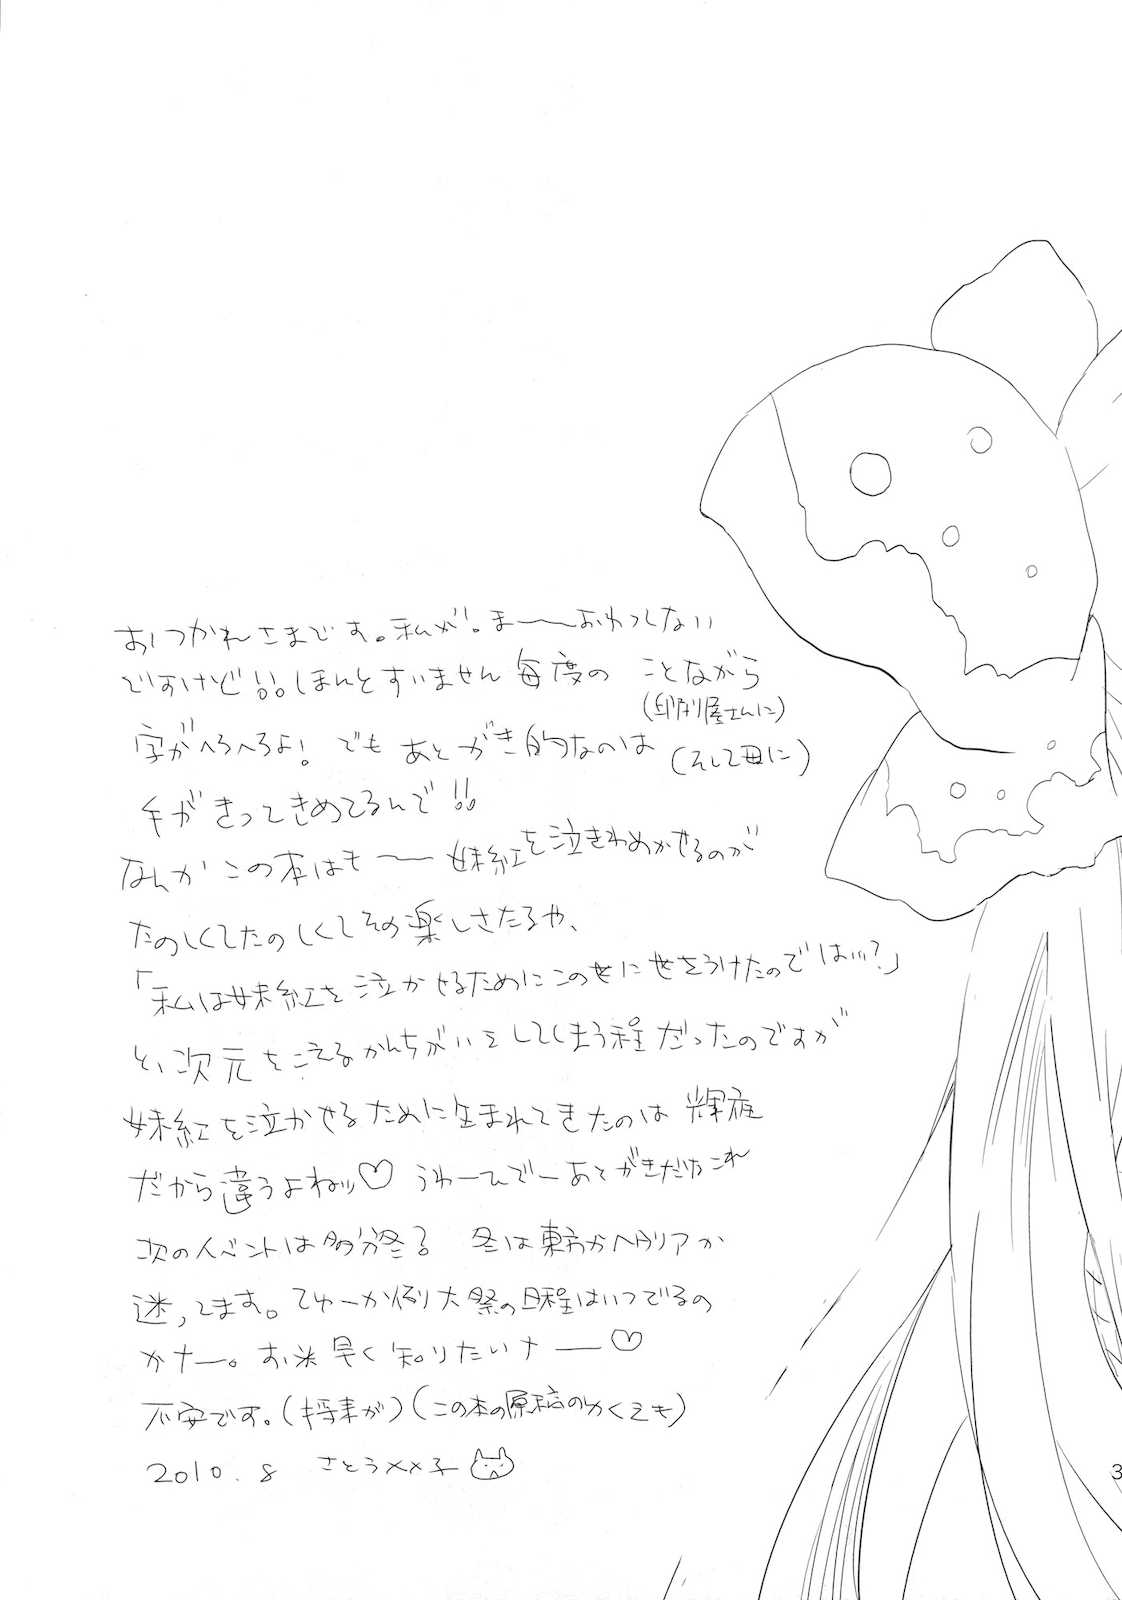 おつかれさまです。私が!。ま〜〜おわってない
ですけど!!。ほんとすいません毎度の ことながら
(印刷屋さんに)
字がへろへろよ! でも あとがき的なのは (そして母に)
手がきってきめてるんで!!
なんか この本はも〜〜 妹紅を泣きわめかせるのが
たのしくてたのしくてその楽しさたるや、
「私は妹紅を泣かせるためにこの世に生をうけたのでは!!!?」
と、次元をこえるかんちがいをしてしまう程だったのですが
妹紅を泣かせるために生まれてきたのは 輝夜
だから違うよねッ♡ うわーひでーあとがきだなこれ
次のイベントは多分冬る 冬は東方かヘタリアか
迷ってます。てゆーか例大祭の日程はいつでるの
かナー。お米早く知りたいナー♡
不安です。(将来が)(この本の原稿のゆくえも)
2010.8 さとう××子
3